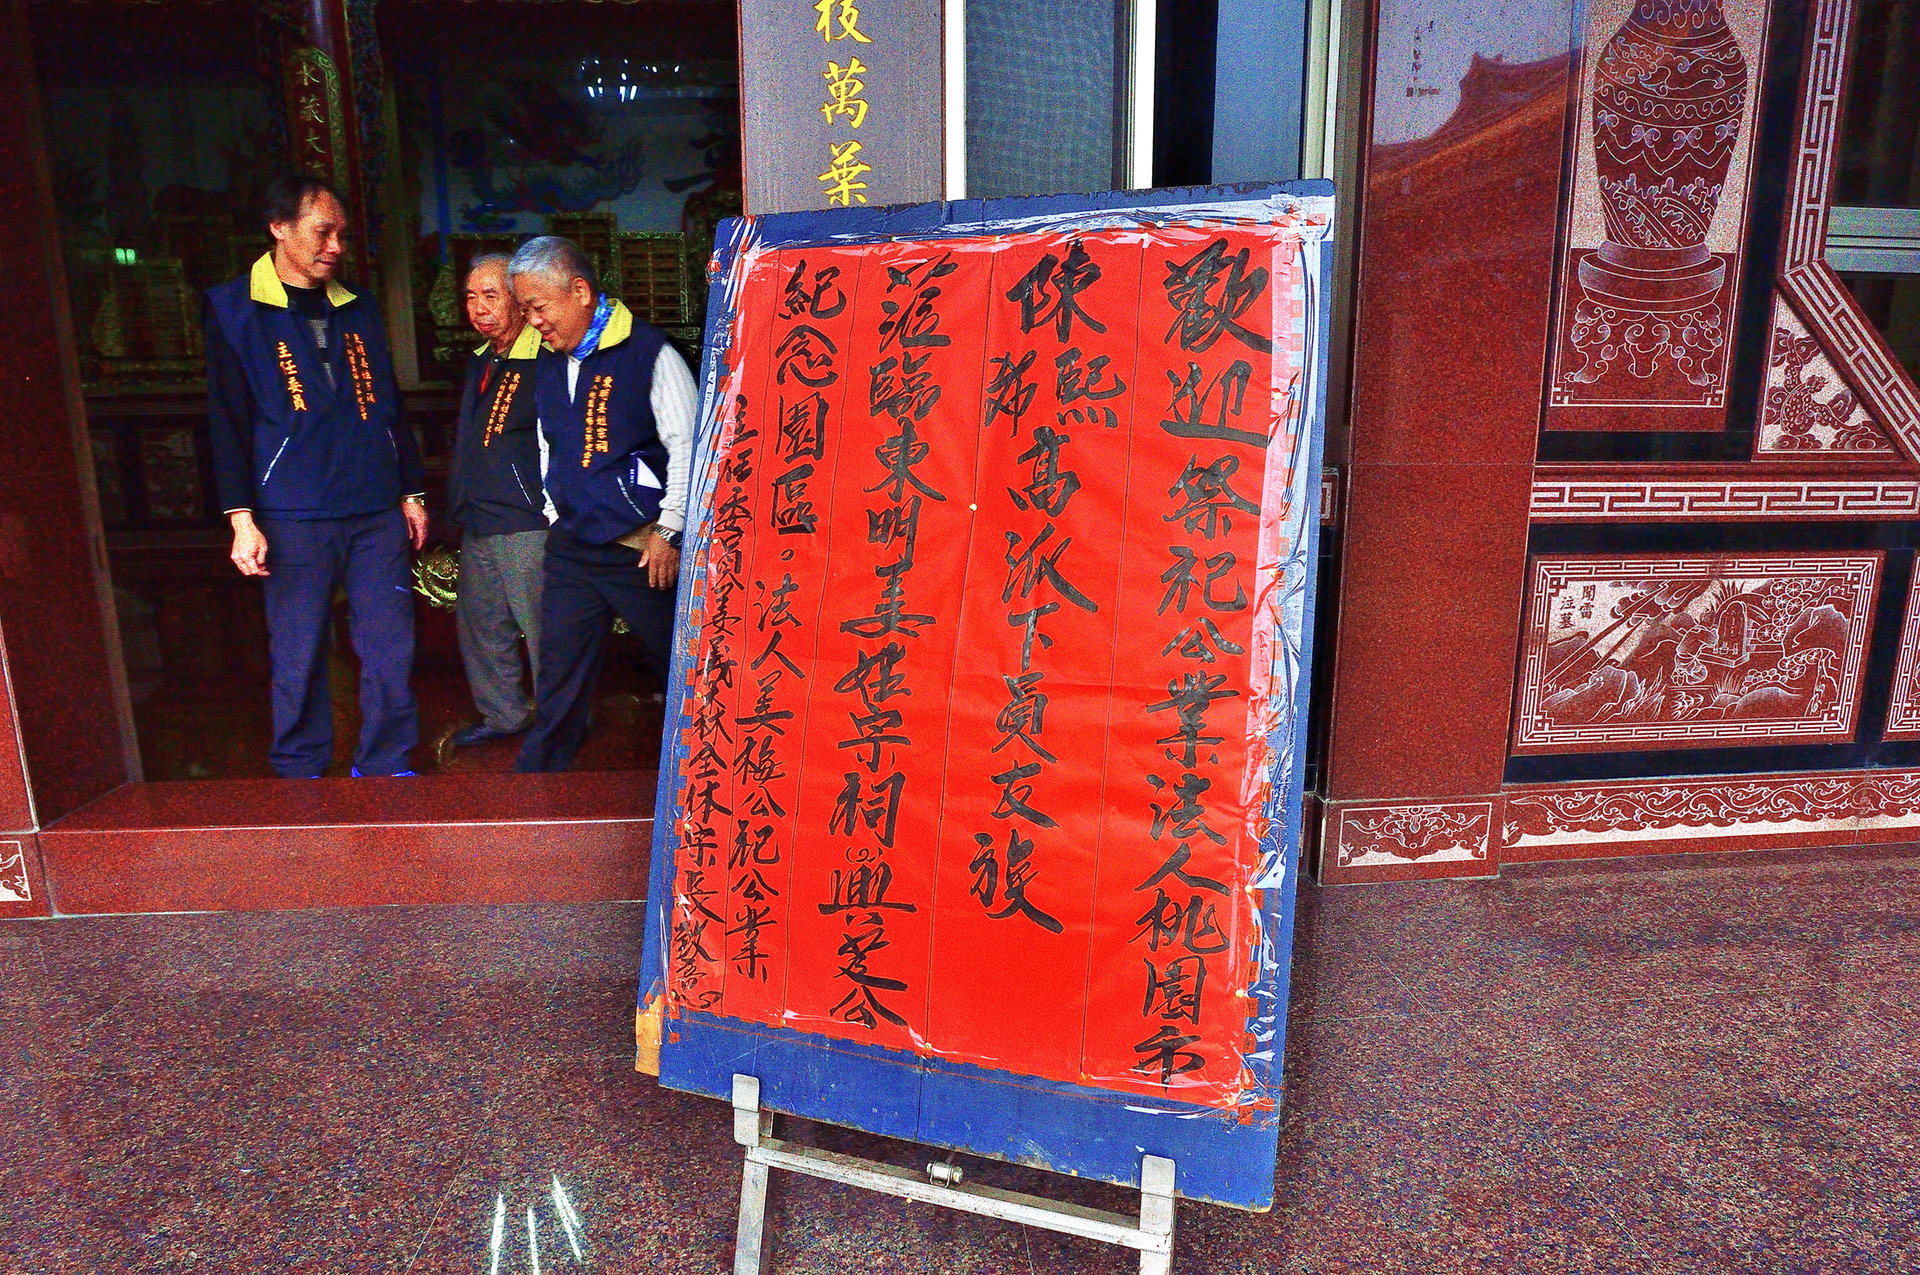 歡迎祭祀公業法人桃園市
陳熙希高派下員友族
蒞臨東明姜姓宗祠興芝公
紀念園區。法人姜梅公祀公業
主任委員姜義天秋全体宗長敬意
枝萬葉
主任委員
聞雷
泣墓